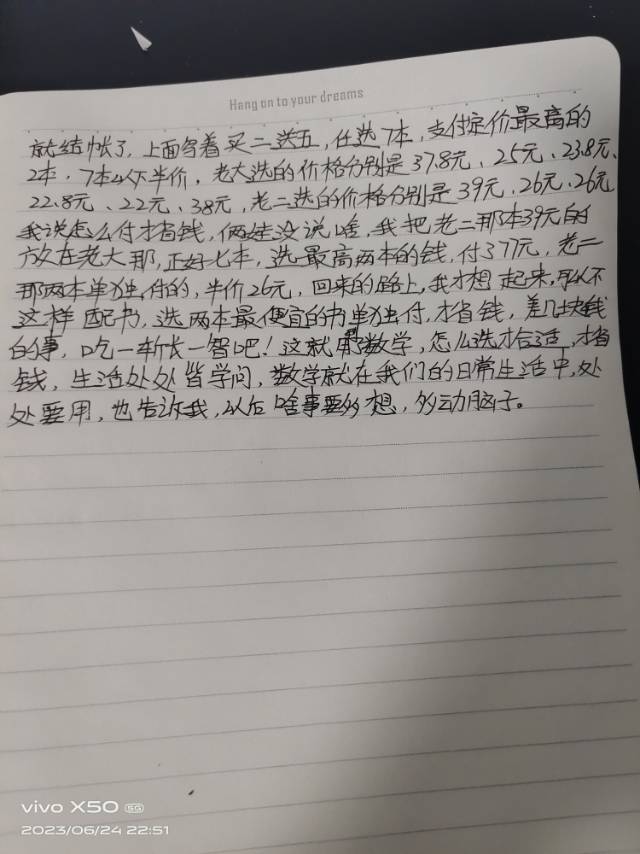 Hang on to your dreams
就结帐了，上面写着买二送五，任选7本，支付定价最高的
2本，7本以下半价，老大选的价格分别是37.8元、25元、23.8元、
22.8元、22元、38元，老二选的价格分别是39元、26元、26元
我说怎么付才省钱，俩娃没说啥，我把老二那本39元的
放在老大那，正好七本，选最高两本的钱，付377元，老二
那两本单独付的，半价26元，回来的路上，我才想起来，可以不
这样配书，选两本最便宜的书单独付，才省钱，差几块钱
的事，吃一堑长一智吧！这就是数学，怎么选才合适，才省
钱，生活处处皆学问，数学就在我们的日常生活中，处
处要用，也告诉我，以后啥事要多想，多动脑子。
vivo X50 5G
2023/06/24 22:51